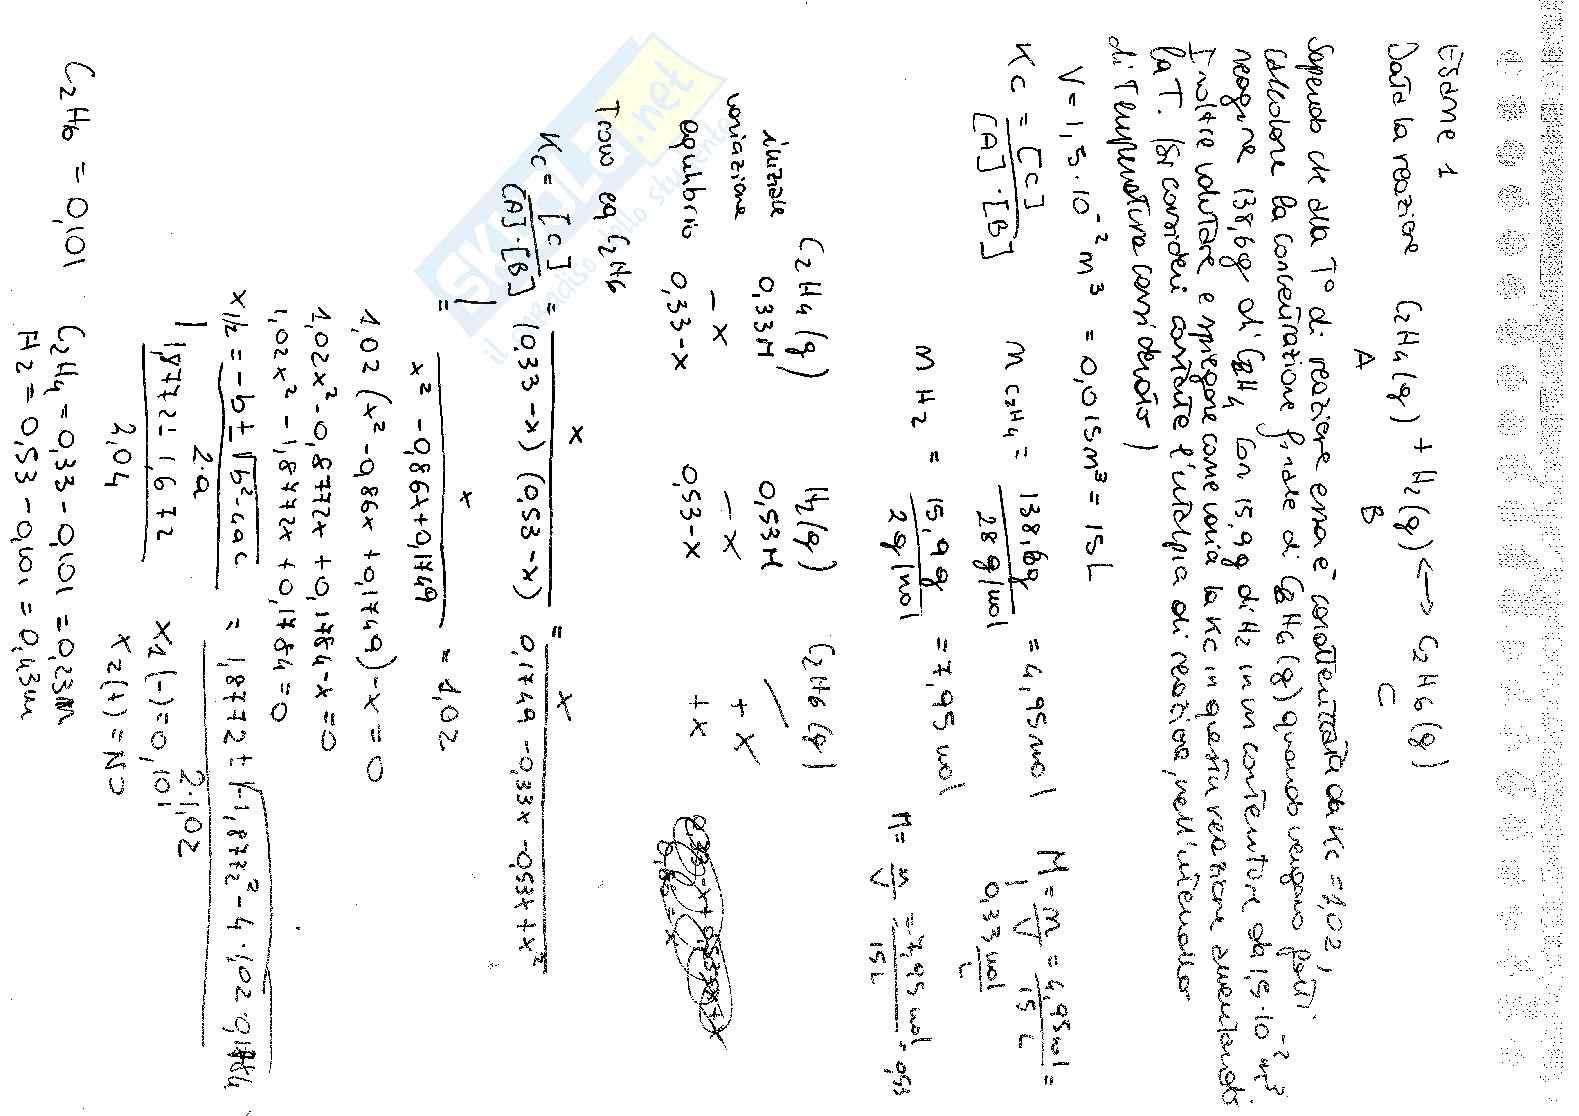 Esame 1
Data la reazione C2H4(g) + H2(g) <-> C2H6(g)
A B C
Sapendo che alla T° di reazione essa è caratterizzata da Kc = 1,02,
calcolare la concentrazione finale di C2H6(g) quando vengono fatti
reagire 138,6g di C2H4 con 15,9g di H2 in un contenitore da 1,5·10⁻² m³
Inoltre valutare e spiegare come varia la Kc in questa reazione aumentando
la T. (Si consideri costante l'entalpia di reazione, nell'intervallo
di Temperatura considerato)
V = 1,5·10⁻² m³ = 0,015m³ = 15L
Kc = [C] / [A]·[B]
n C2H4 = 138,6g / 28g/mol = 4,95mol
M = n / V = 4,95mol / 15L =
0,33 mol / L
n H2 = 15,9g / 2g/mol = 7,95mol
M = n / V = 7,95mol / 15L = 0,53
C2H4(g) H2(g) C2H6(g)
iniziale 0,33M 0,53M /
variazione -x -x +x
equilibrio 0,33-x 0,53-x +x
Trovo eq C2H6
Kc = [C] / [A]·[B] = x / (0,33-x)(0,53-x) = x / 0,1749 - 0,33x - 0,53x + x²
= x / x² - 0,86x + 0,1749 = 1,02
1,02 (x² - 0,86x + 0,1749) - x = 0
1,02x² - 0,8772x + 0,1784 - x = 0
1,02x² - 1,8772x + 0,1784 = 0
x1/2 = -b ± √b²-4ac / 2·a = 1,8772 ± √-1,8772² - 4·1,02·0,1784 / 2·1,02
1,8772 ± 1,672 / 2,04
x1(-) = 0,101
x2(+) = NO
C2H6 = 0,101
C2H4 = 0,33 - 0,101 = 0,23M
H2 = 0,53 - 0,101 = 0,43M
SKUOLA.net
il paradiso dello studente